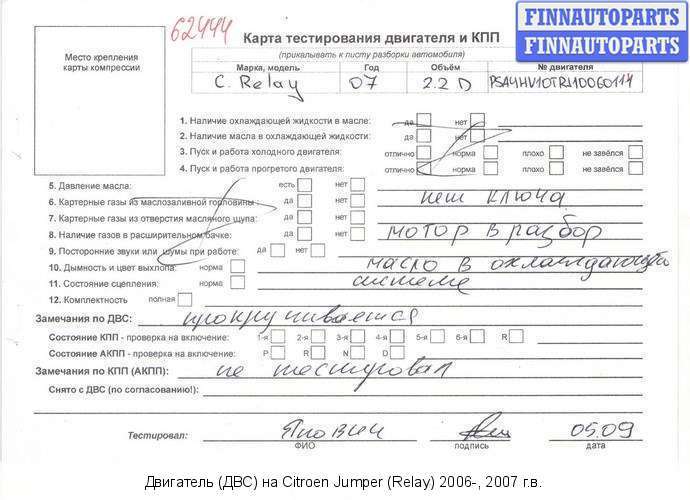 62444
Карта тестирования двигателя и КПП
FINNAUTOPARTS
FINNAUTOPARTS
(прикалывать к листу разборки автомобиля)
Место крепления
карты компрессии
Марка, модель Год Объём № двигателя
C. Relay 07 2.2 D PSA4HV10TRJ10060114
1. Наличие охлаждающей жидкости в масле: да нет
2. Наличие масла в охлаждающей жидкости: да нет
3. Пуск и работа холодного двигателя: отлично норма плохо не завёлся
4. Пуск и работа прогретого двигателя: отлично норма плохо не завёлся
5. Давление масла: есть нет
6. Картерные газы из маслозаливной горловины: да нет нет ключа
7. Картерные газы из отверстия масляного щупа: да нет
8. Наличие газов в расширительном бачке: да нет мотор в разбор
9. Посторонние звуки или шумы при работе: да нет
10. Дымность и цвет выхлопа: норма масло в охлаждающей
11. Состояние сцепления: норма системе
12. Комплектность полная
Замечания по ДВС: прокручивается
Состояние КПП - проверка на включение: 1-я 2-я 3-я 4-я 5-я 6-я R
Состояние АКПП - проверка на включение: P R N D
Замечания по КПП (АКПП): не тестировал
Снято с ДВС (по согласованию!):
Тестировал: 05.09
ФИО подпись дата
Двигатель (ДВС) на Citroen Jumper (Relay) 2006-, 2007 г.в.